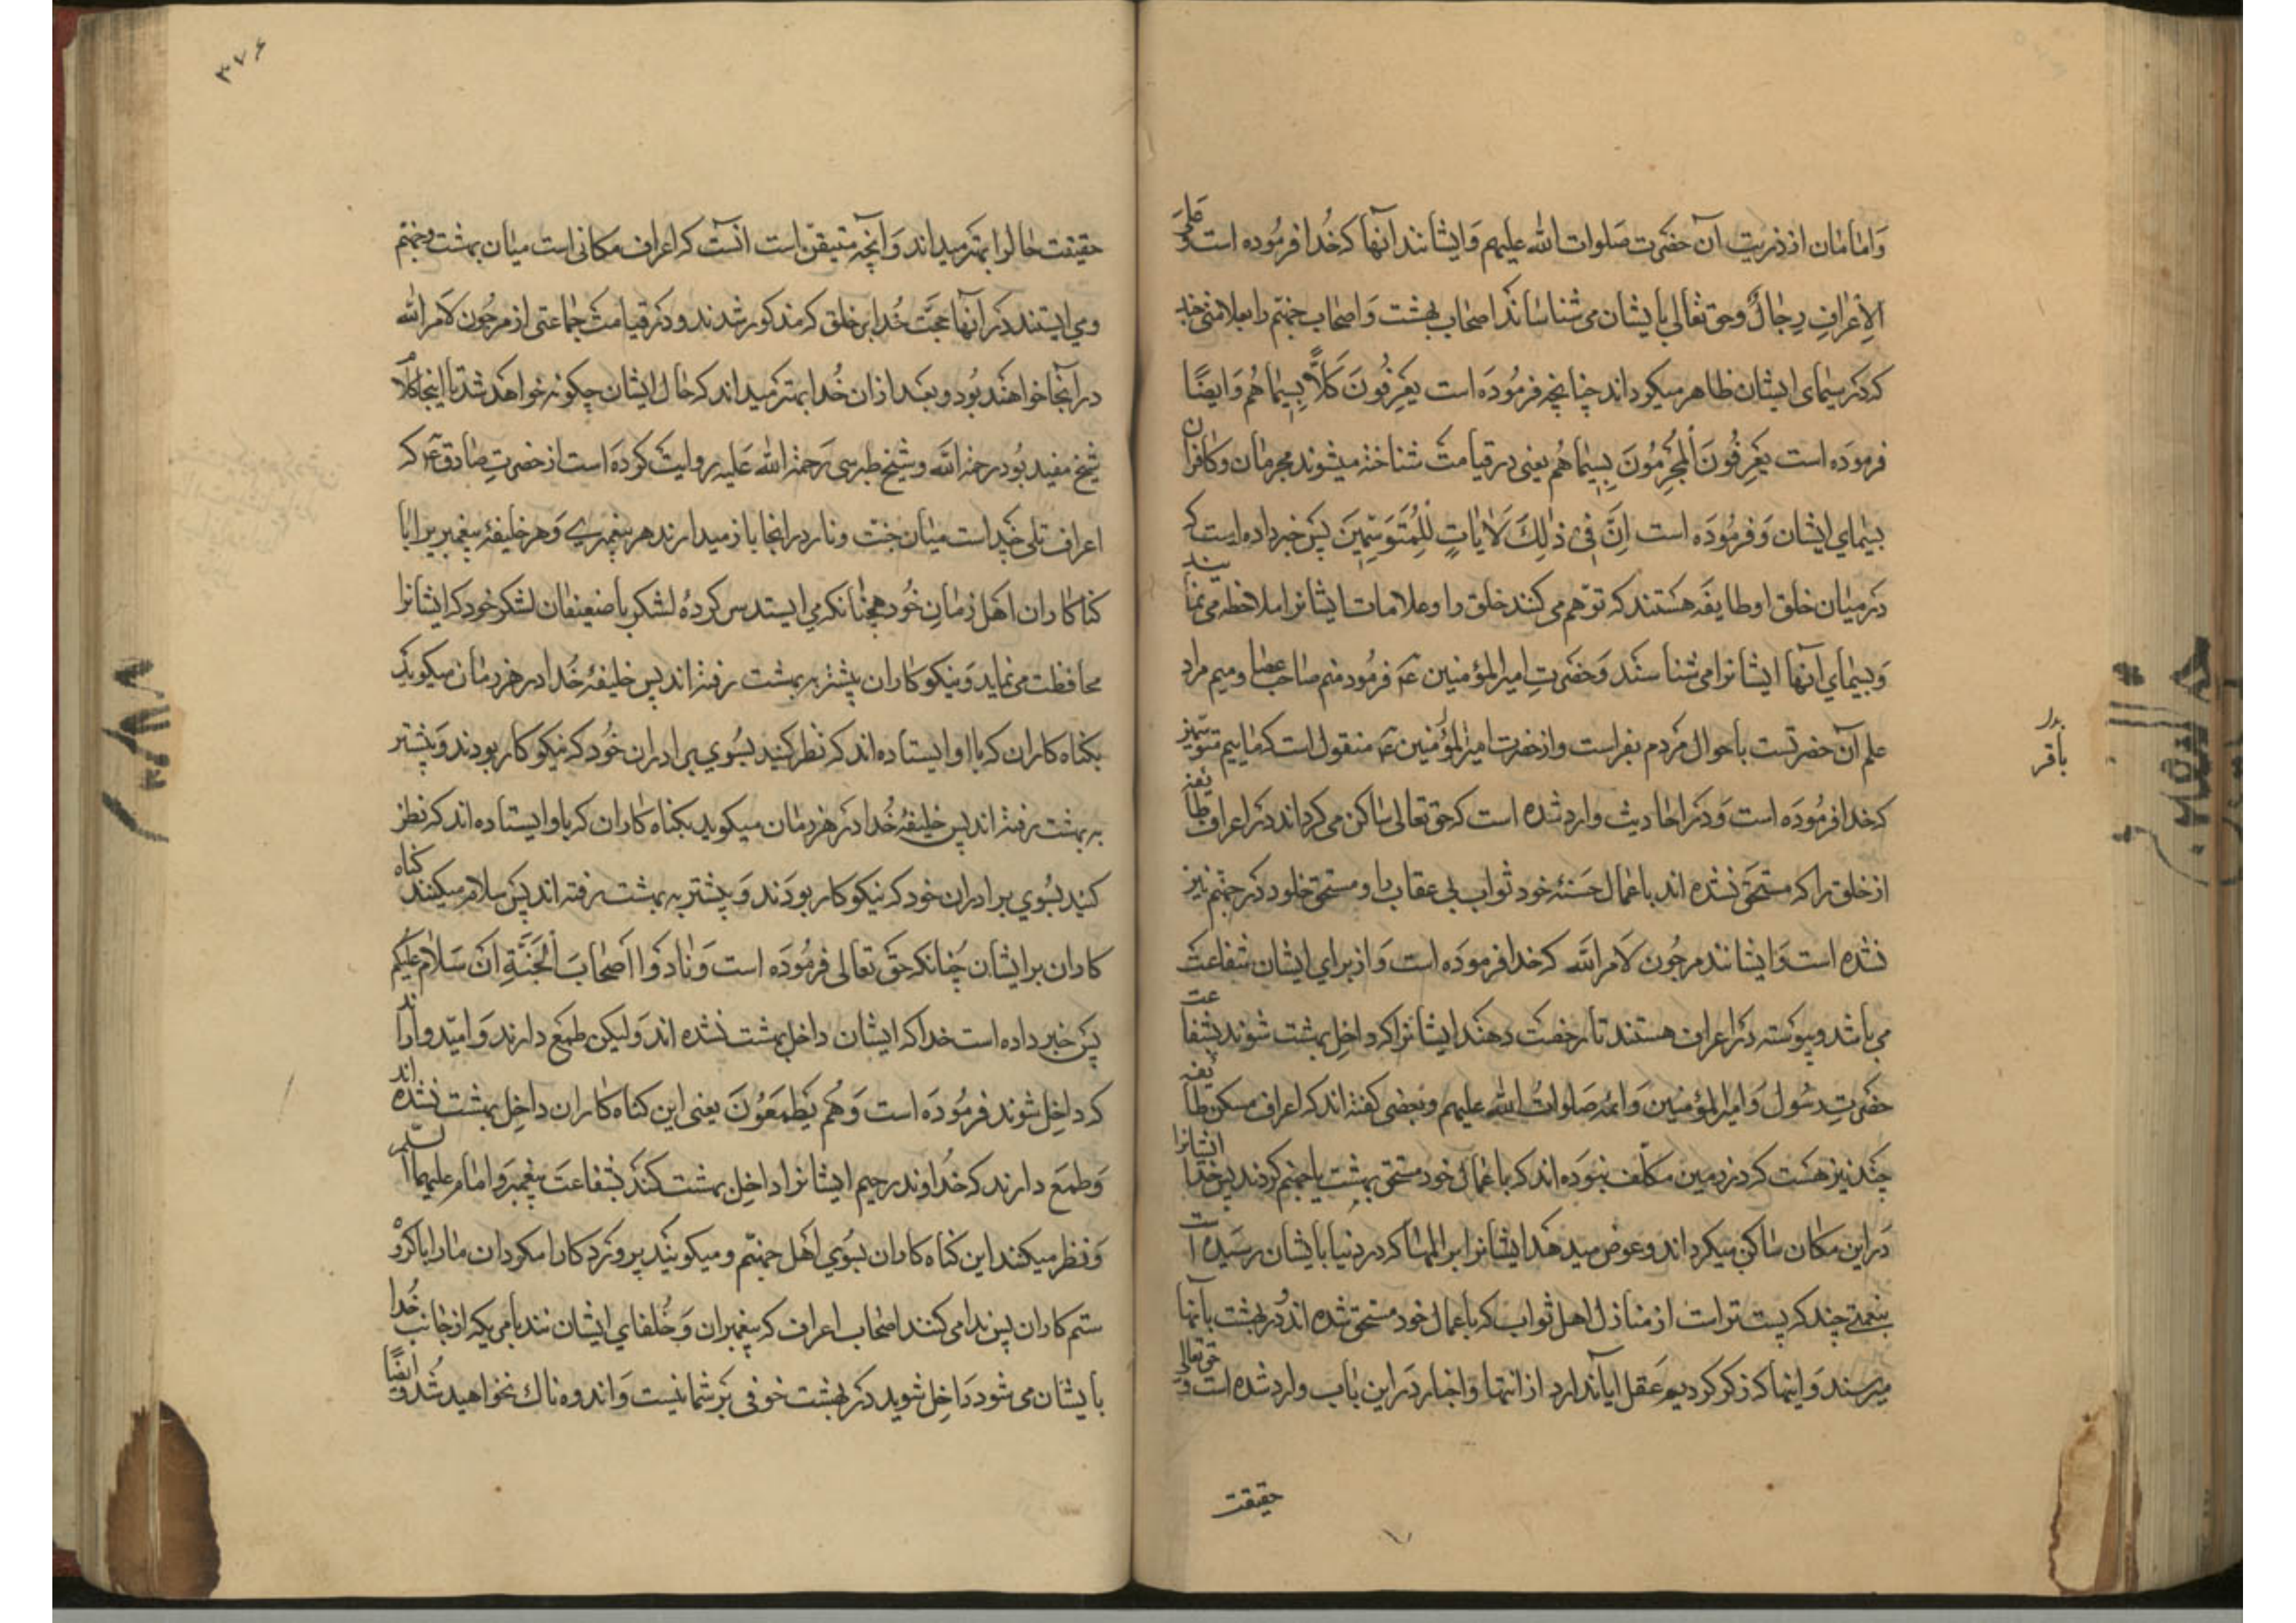 وامامان از ذریت آن حضرت صلوات الله علیهم وایشانند آنها که خدا فرموده است وعلی
الاعراف رجال وحق تعالی بایشان می شناساند اصحاب بهشت واصحاب جهنم را بعلامتی چند
که در سیمای ایشان ظاهر میگرداند چنانچه فرموده است یعرفون کلا بسیماهم وایضا
فرموده است یعرفون المجرمون بسیماهم یعنی در قیامت شناخته میشوند مجرمان وکافران
بسیمای ایشان وفرموده است ان فی ذلک لایات للمتوسمین پس خبر داده است که
در میان خلق او طایفه هستند که توهم می کنند خلق را وعلامات ایشانرا ملاحظه می نمایند
وبسیمای آنها ایشانرا می شناسند وحضرت امیرالمؤمنین ع فرمود منم صاحب عصا ومیم مراد
علم آن حضرتست باحوال مردم بفراست واز حضرت امیرالمؤمنین ع منقول است که ماییم متوسمین
که خدا فرموده است ودر احادیث وارد شده است که حق تعالی ساکن می گرداند در اعراف طایفه
از خلق را که مستحق نشده اند باعمال حسنه خود ثواب بی عقاب را ومستحق خلود در جهنم نیز
نشده است وایشانند مرجون لامر الله که خدا فرموده است واز برای ایشان شفاعت
می باشد وپیوسته در اعراف هستند تا رخصت دهند ایشانرا که داخل بهشت شوند بشفاعت
حضرت رسول وامیرالمؤمنین وائمه صلوات الله علیهم وبعضی گفته اند که اعراف مسکن طایفه
چند نیز هست که در زمین مکلف نبوده اند که باعمال خود مستحق بهشت یا جهنم گردند پس خدا ایشانرا
در این مکان ساکن میگرداند وعوض میدهد ایشانرا بر المها که در دنیا بایشان رسیده است
بنعمتی چند که پست تر است از منازل اهل ثواب که باعمال خود مستحق شده اند ودر بهشت بآنها
میرسند واینها که ذکر کردیم عقل ابا ندارد از اینها واخبار در این باب وارد شده است وحق تعالی
حقیقت
بدر
باقر
۳۷۶
حقیقت حالرا بهتر میداند وآنچه متیقن است آنست که اعراف مکانی است میان بهشت وجهنم
ومی ایستند در آنها حجت خدا بر خلق که مذکور شدند ودر قیامت جماعتی از مرجون لامر الله
در آنجا خواهند بود وبعد از آن خدا بهتر میداند که حال ایشان چگونه خواهد شد تا اینجا کلام
شیخ مفید بود رحمه الله وشیخ طبرسی رحمة الله علیه روایت کرده است از حضرت صادق ع که
اعراف تلی چند است میان جنت ونار در آنجا باز میدارند هر پیغمبری وهر خلیفه پیغمبریرا با
گناکاران اهل زمان خود همچنانکه می ایستد سرکرده لشکر با ضعیفان لشکر خود که ایشانرا
محافظت می نماید ونیکوکاران پیشتر به بهشت رفته اند پس خلیفه خدا در هر زمان میگوید
بگناه کاران که با او ایستاده اند که نظر کنید بسوی برادران خود که نیکوکار بودند وپیشتر
به بهشت رفته اند پس خلیفه خدا در هر زمان میگوید بگناه کاران که باو ایستاده اند که نظر
کنید بسوی برادران خود که نیکوکار بودند وپیشتر به بهشت رفته اند پس سلام میکنند گناه
کاران بر ایشان چنانکه حق تعالی فرموده است ونادوا اصحاب الجنة ان سلام علیکم
پس خبر داده است خدا که ایشان داخل بهشت نشده اند ولیکن طمع دارند وامیدوارند
که داخل شوند فرموده است وهم یطمعون یعنی این گناه کاران داخل بهشت نشده اند
وطمع دارند که خداوند رحیم ایشانرا داخل بهشت کند بشفاعت پیغمبر وامام علیهما السلم
ونظر میکنند این گناه کاران بسوی اهل جهنم ومیگویند پروردگارا مگردان مارا با گروه
ستم کاران پس ندا می کنند اصحاب اعراف که پیغمبران وخلفای ایشان بامریکه از جانب خدا
بایشان می شود داخل شوید در بهشت خوفی بر شما نیست واندوه ناک نخواهید شد وایضا